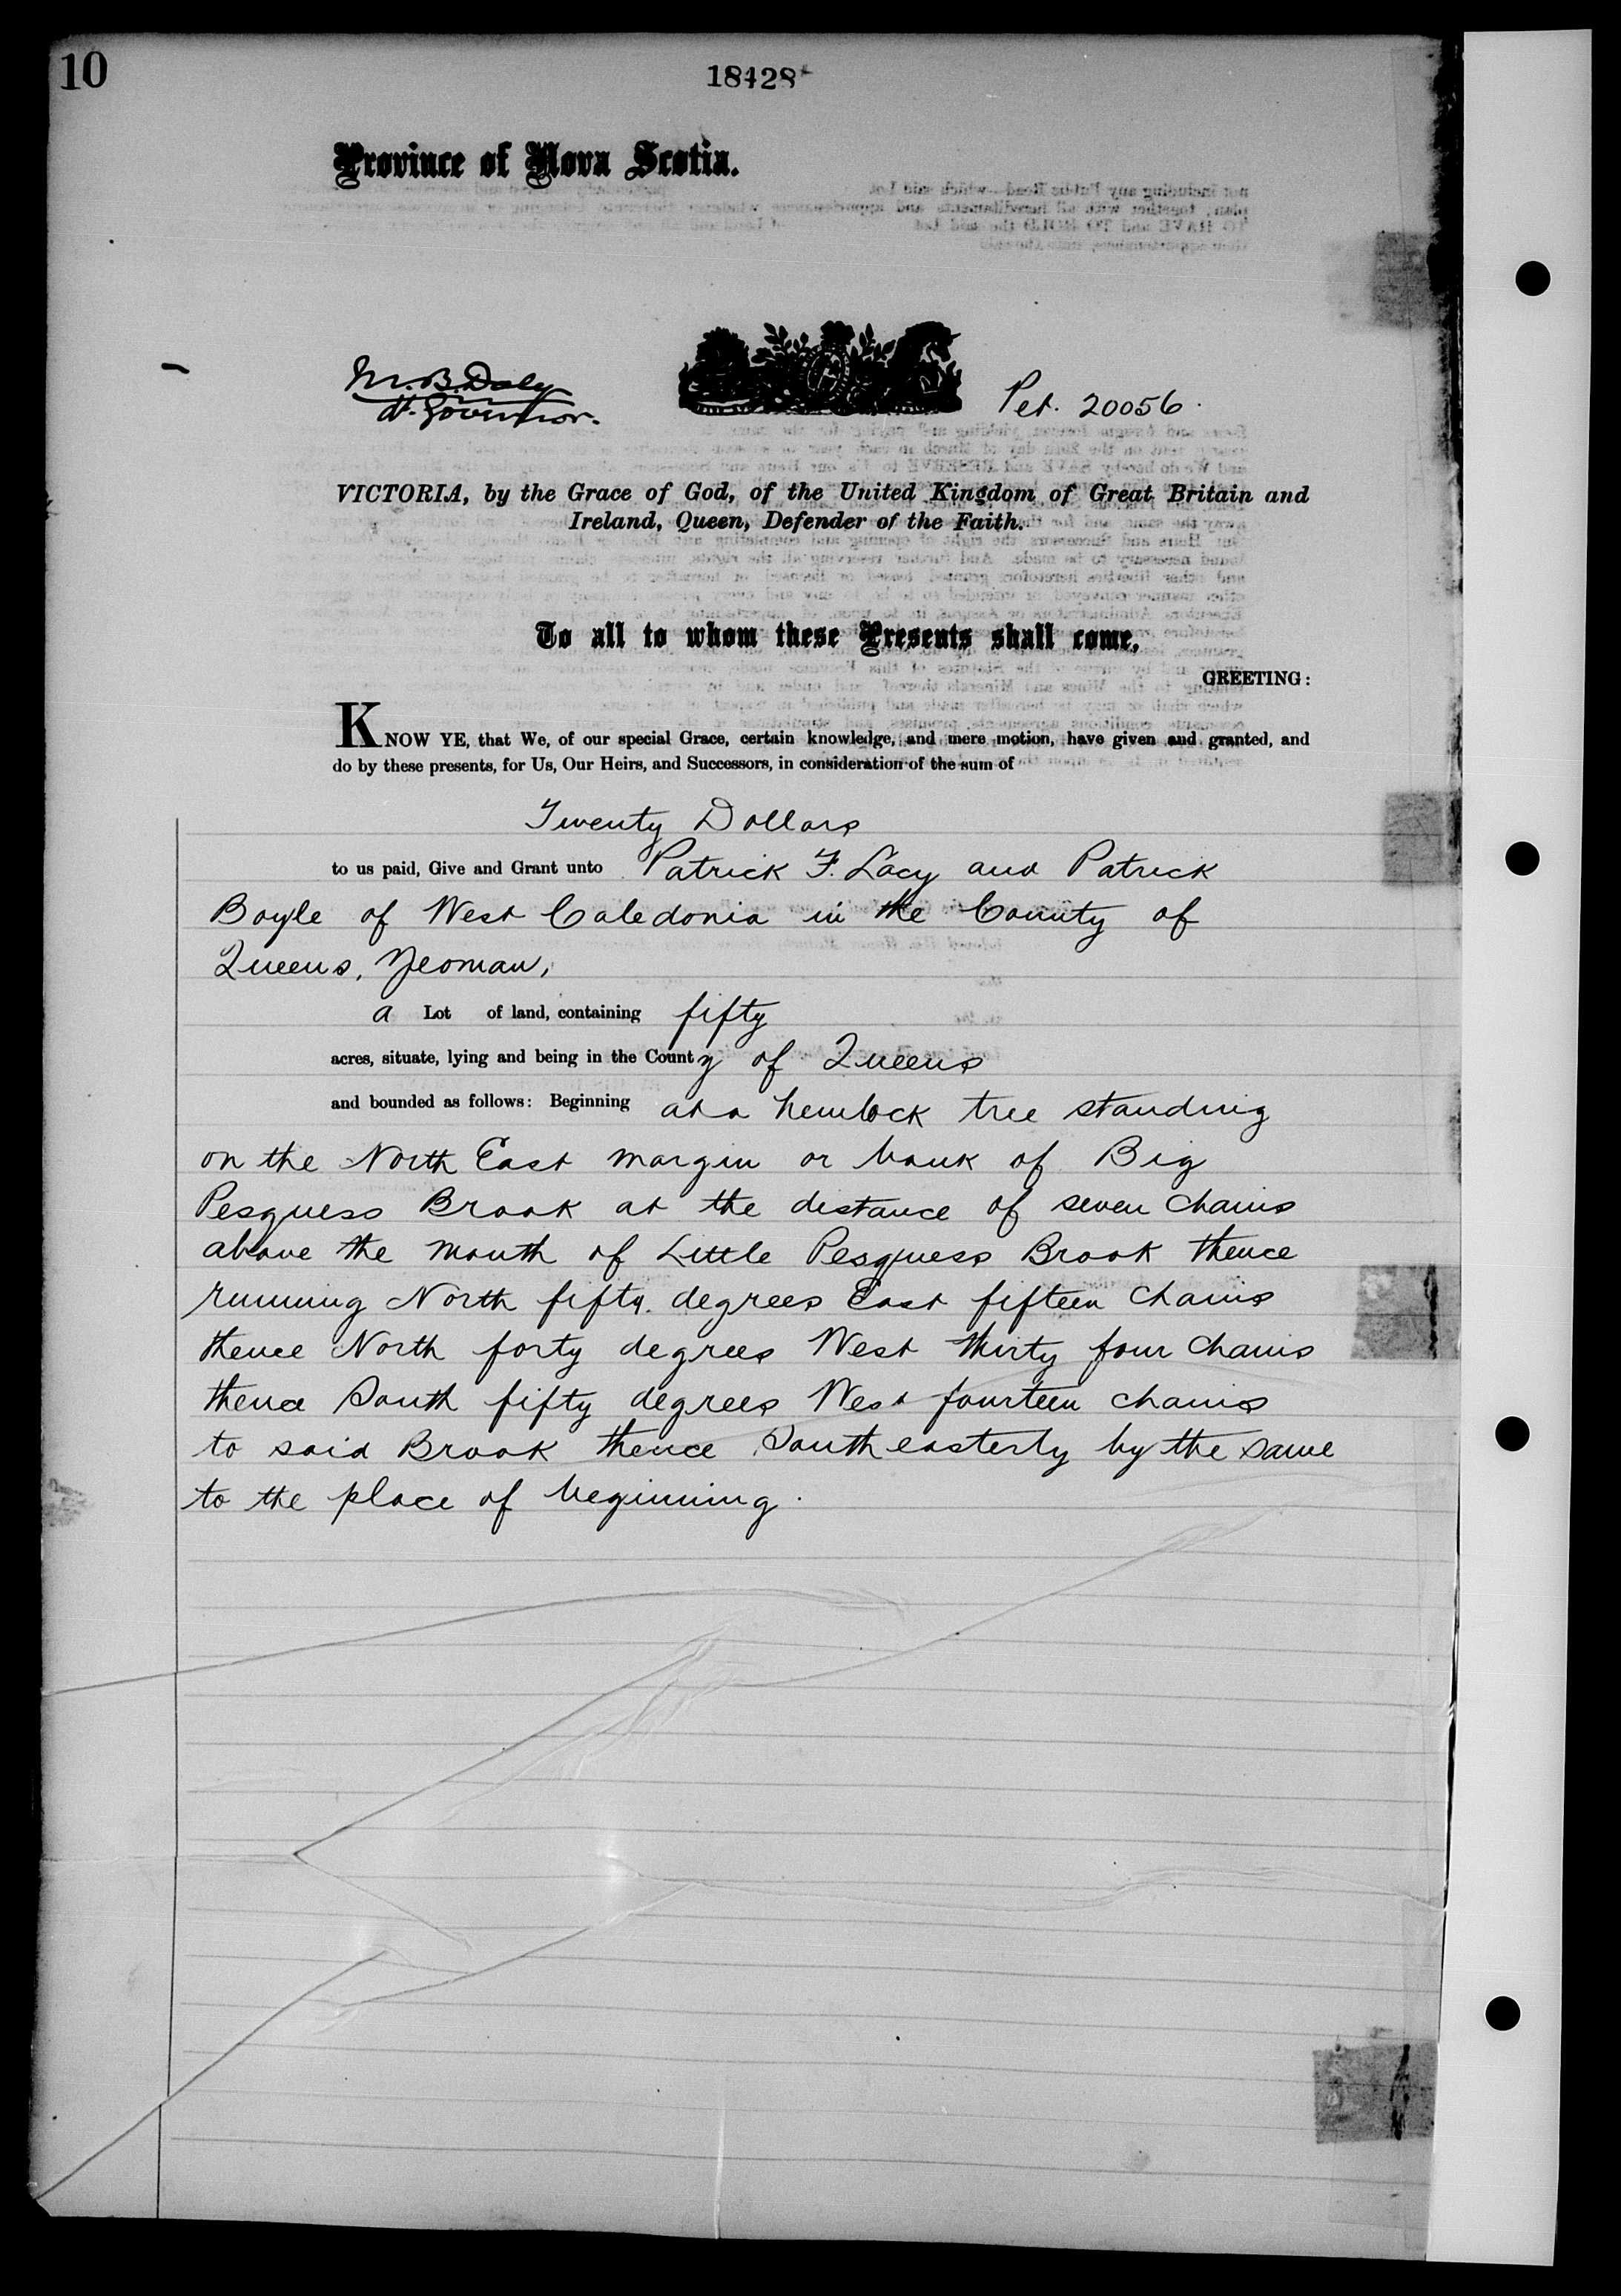 10
18428
Province of Nova Scotia.
M. B. Daly
Lt. Governor.
Pet. 20056.
VICTORIA, by the Grace of God, of the United Kingdom of Great Britain and
Ireland, Queen, Defender of the Faith.
To all to whom these Presents shall come,
GREETING:
KNOW YE, that We, of our special Grace, certain knowledge, and mere motion, have given and granted, and
do by these presents, for Us, Our Heirs, and Successors, in consideration of the sum of
Twenty Dollars
to us paid, Give and Grant unto Patrick F. Lacy and Patrick
Boyle of West Caledonia in the County of
Queens, Yeoman,
a Lot of land, containing fifty
acres, situate, lying and being in the County of Queens
and bounded as follows: Beginning at a hemlock tree standing
on the North East margin or bank of Big
Pesquess Brook at the distance of seven chains
above the mouth of Little Pesquess Brook thence
running North fifty degrees East fifteen chains
thence North forty degrees West thirty four chains
thence South fifty degrees West fourteen chains
to said Brook thence South easterly by the same
to the place of beginning.